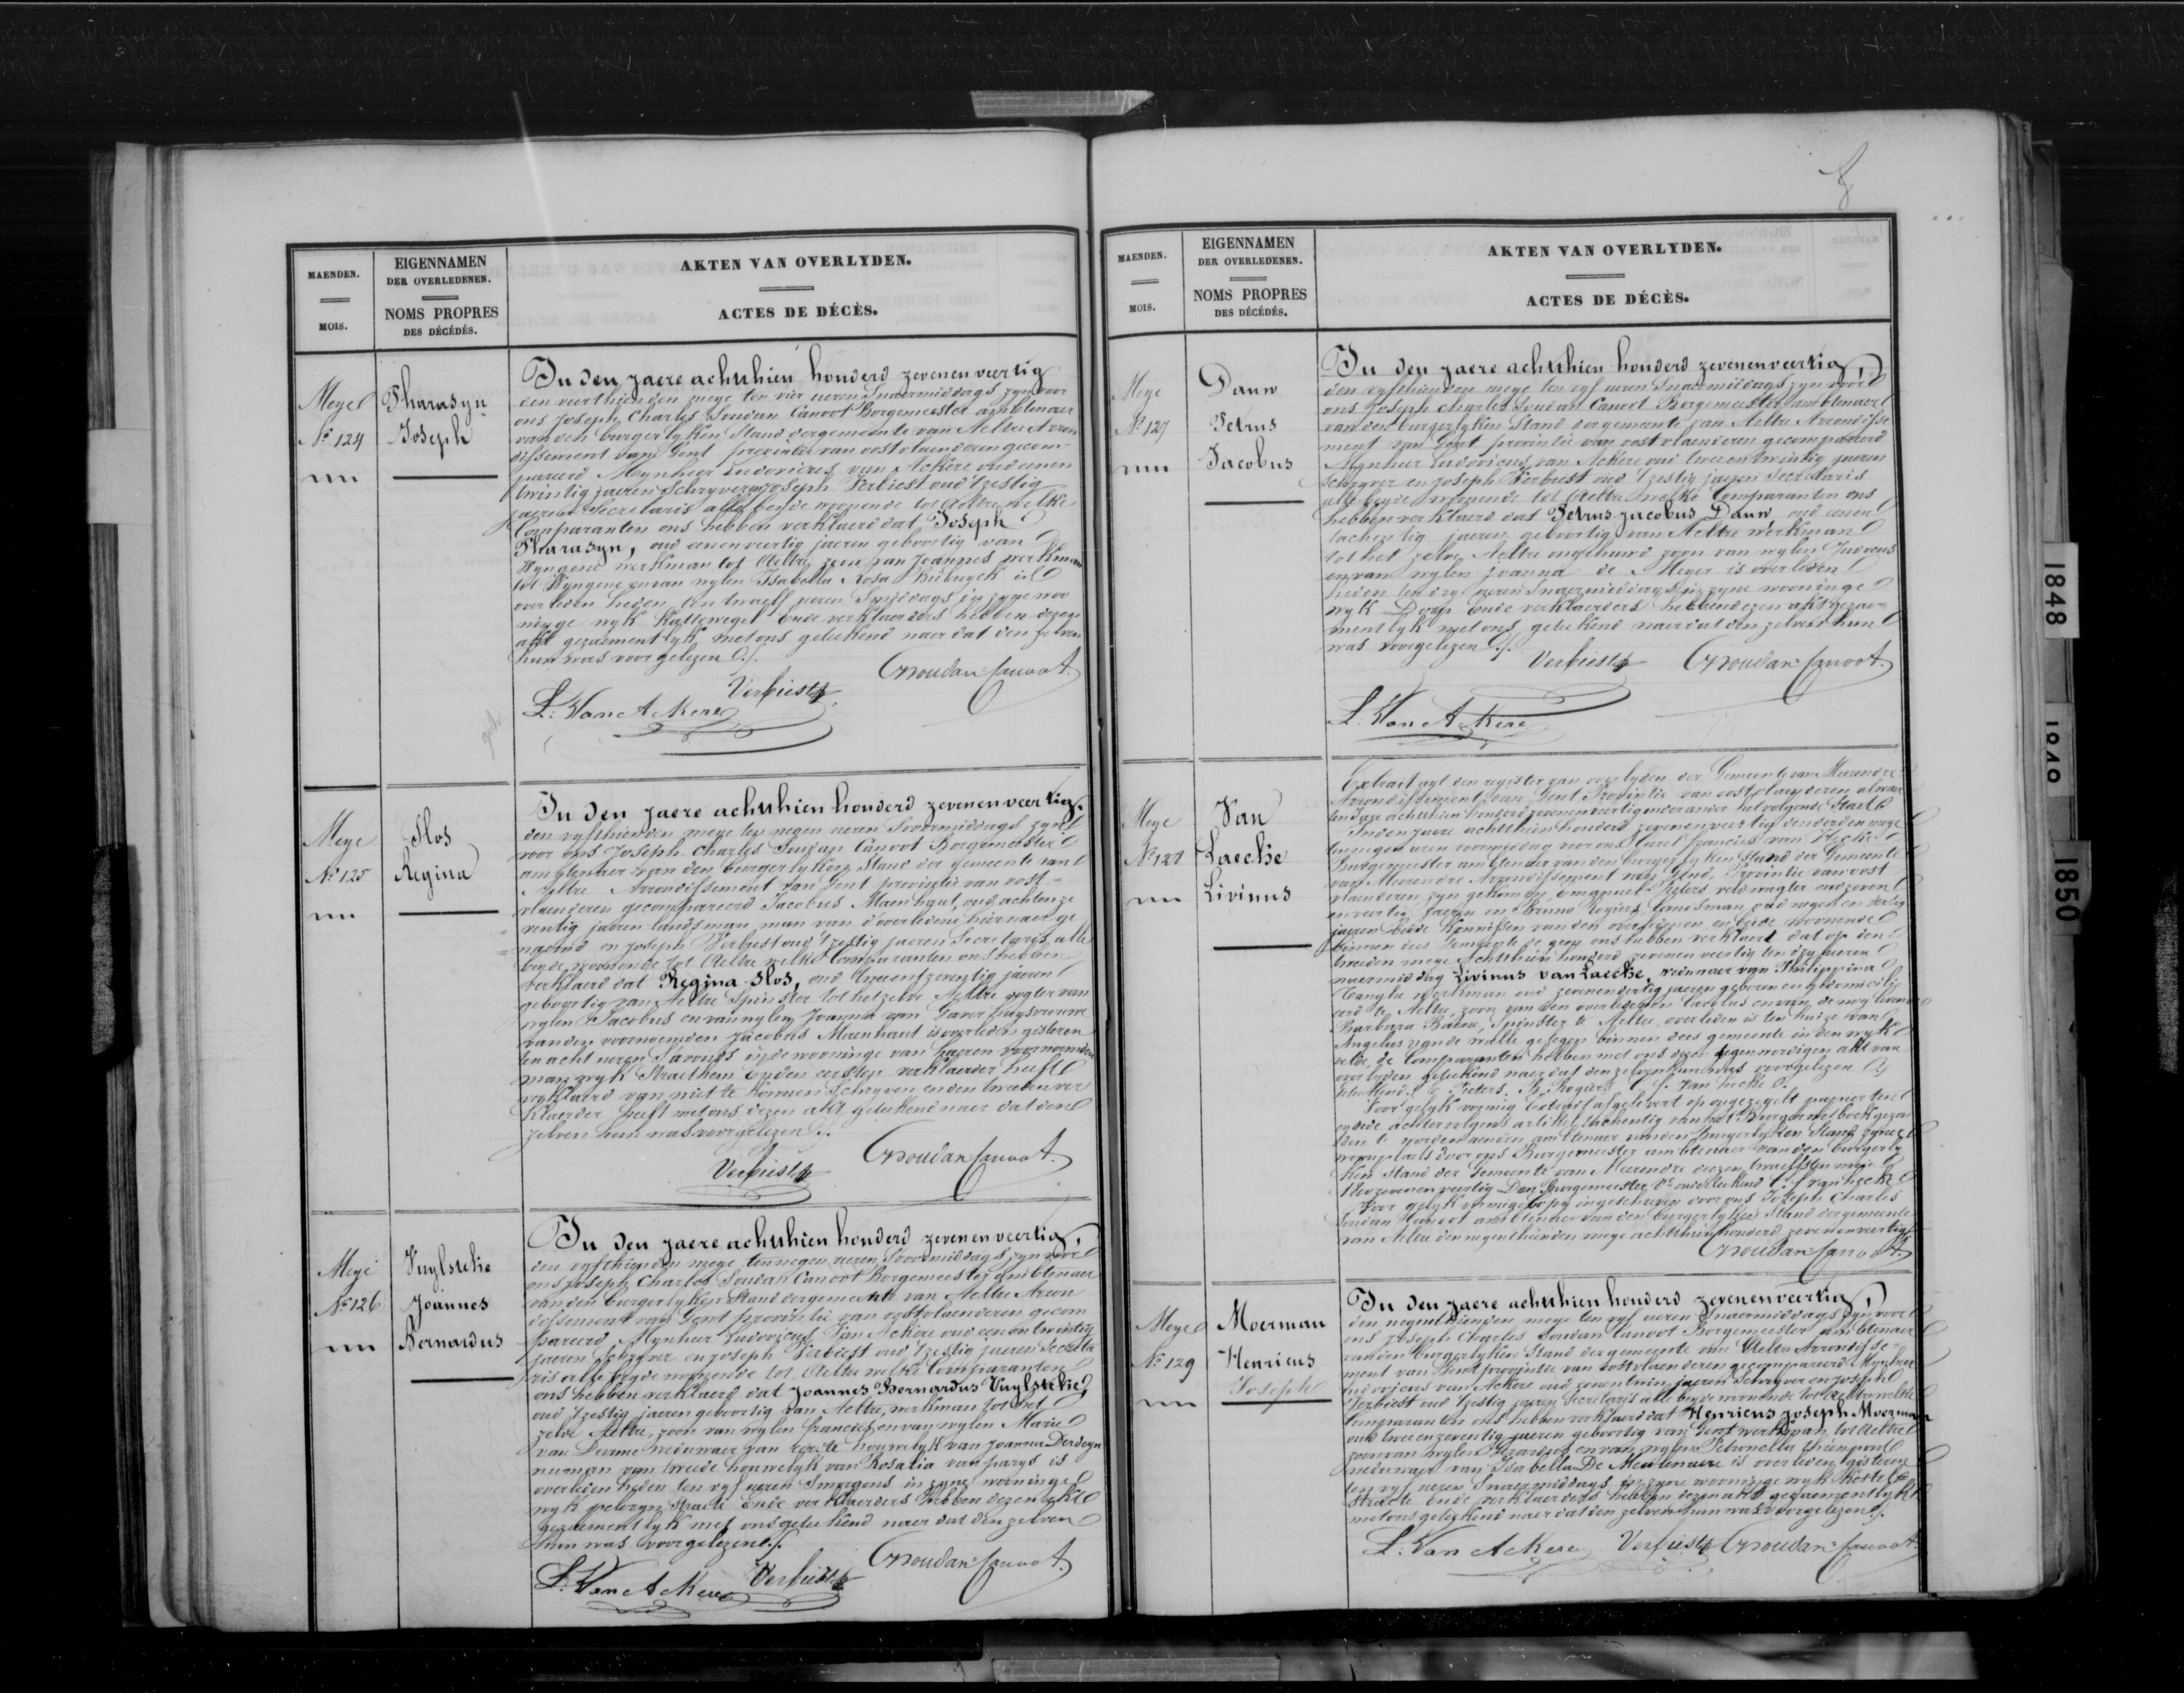 MAENDEN.
MOIS.
EIGENNAMEN
DER OVERLEDENEN.
NOMS PROPRES
DES DÉCÉDÉS.
AKTEN VAN OVERLYDEN.
ACTES DE DÉCÈS.
Meye
Nº 124
Tharasyn
Joseph
In den jaere achtthien honderd zevenenveertig
den veerthienden meye ten vier ueren Snaermiddags zyn voor
ons Joseph Charles Soudan Canoot Borgemeester ambtenaer
van den burgerlyken Stand dergemeente van Aeltre Arron
dissement van Gent provintie van oostvlaenderen gecom-
pareerd Mynheer Ludovicus van Ackere oud eenen
twintig jaeren Schryver en Joseph Verbiest oud 't zestig
jaeren Secretaris alle beyde woonende tot Aeltre welke
Comparanten ons hebben verklaerd dat Joseph
Tharasyn, oud eenenveertig jaeren geboortig van
Wyngene werkman tot Aeltre zoon van Joannes werkman
tot Wyngene en van wylen Isabella Rosa is
overleden heden ten twaelf ueren Smiddags in zyne woo
ninge wyk Katteweget Ende verklaerders hebben dezen
akt gezaementlyk met ons geteekend naer dat den zelven
hun was voorgelezen ./.
Verbiest Csoudan Canoot.
L. Van Ackere
Meye
Nº 125
Slos
Regina
In den jaere achtthien honderd zevenenveertig.
den vyfthienden meye ten negen ueren Svoormiddags zyn
voor ons Joseph Charles Soudan Canoot Borgemeester
ambtenaer van den burgerlyken Stand der gemeente van
Aeltre Arrondissement van Gent provintie van oost-
vlaenderen gecompareerd Jacobus Maenhaut oud achtenze
ventig jaeren landsman man van d'overledene hiernaer ge
naemd en Joseph Verbiest oud 't zestig jaeren Secretaris alle
beyde woonende tot Aeltre welke Comparanten ons hebben
verklaerd dat Regina Slos, oud tweentzeventig jaeren
geboortig van Aeltre Spinster tot hetzelve Aeltre dogter van
wylen Jacobus en van wylen Joanna van huysvrouwe
van den voornoemden Jacobus Maenhaut is overleden gisteren
ten acht ueren S'avonds in de wooninge van haeren voornoemden
man wyk Straethem Enden eersten verklaerder heeft
verklaerd van niet te konnen Schryven en den tweeden ver
klaerder heeft met ons dezen akt geteekend naer dat den
zelven hun was voorgelezen ./.
Verbiest Csoudan Canoot.
Meye
Nº 126
Vuylsteke
Joannes
Bernardus
In den jaere achtthien honderd zevenenveertig,
den vyfthienden meye ten negen ueren Svoormiddags zyn voor
ons Joseph Charles Soudan Canoot Borgemeester ambtenaer
van den burgerlyken Stand dergemeente van Aeltre Arron
dissement van Gent provintie van oostvlaenderen gecom
pareerd Mynheer Ludovicus Van Ackere oud eenentwintig
jaeren Schryver en Joseph Verbiest oud 't zestig jaeren Secreta
ris alle beyde woonende tot Aeltre welke Comparanten
ons hebben verklaerd dat Joannes Bernardus Vuylsteke,
oud 't zestig jaeren geboortig van Aeltre, werkman tot het
zelve Aeltre, zoon van wylen francies en van wylen Marie
van Deurme weduwaer van eerste houwelyk van Joanna Derdeyn
nu man van tweede houwelyk van Rosalia van parys is
overleden heden ten vyf ueren Smorgens in zyne wooninge
wyk pelegryn Straete Ende verklaerders hebben dezen akt
gezaementlyk met ons geteekend naer dat den zelven
hun was voorgelezen ./.
L. Van Ackere Verbiest Csoudan Canoot.
MAENDEN.
MOIS.
EIGENNAMEN
DER OVERLEDENEN.
NOMS PROPRES
DES DÉCÉDÉS.
AKTEN VAN OVERLYDEN.
ACTES DE DÉCÈS.
Meye
Nº 127
Dauw
Petrus
Jacobus
In den jaere achtthien honderd zevenenveertig,
den vyfthienden meye ten vyf ueren Snaermiddags zyn voor
ons Joseph Charles Soudan Canoot Borgemeester ambtenaer
van den burgerlyken Stand dergemeente van Aeltre Arrondisse
ment van Gent provintie van oostvlaenderen gecompareerd
Mynheer Ludovicus van Ackere oud tweeentwintig jaeren
Schryver en Joseph Verbiest oud 't zestig jaeren Secretaris
alle beyde woonende tot Aeltre welke Comparanten ons
hebben verklaerd dat Petrus Jacobus Dauw oud eenen
tachentig jaeren geboortig van Aeltre werkman
tot het zelve Aeltre ongehuwd zoon van wylen Judocus
en van wylen Joanna de Meyer is overleden
heden ten dry ueren Snaermiddags in zyne wooninge
wyk Dorp Ende verklaerders hebben dezen akt gezae-
mentlyk met ons geteekend naer dat den zelven hun
was voorgelezen ./.
Verbiest Csoudan Canoot.
L. Van Ackere
Meye
Nº 128
Van
Laecke
Livinus
Extrait uyt den register van overlyden der Gemeente van Meerendre
Arrondissement van Gent Provintie van oostvlaenderen alwaer
ten Jaere achtthien honderd zevenenveertig het volgende Staet
In den jaere achtthien honderd zevenenveertig den derden meye
ten negen uren voormiddag voor ons Charel francies van Hecke
Burgemeester ambtenaer van den burgerlyken Stand der Gemeente
van Meerendre Arrondissement van Gend, Provintie van oost
vlaenderen zyn gekomen, Emanuel Pieters veldwagter oud zeven
enveertig Jaeren en Bruno Rogiers landsman oud negenendertig
jaeren beide kennissen van den overledenen en beide woonende
binnen dees Gemeente de geene ons hebben verklaert dat op den
tweeden meye achtthien honderd zevenenveertig ten uren
naermiddag Livinus van Laecke, weduwaer van Philippina
werkman oud zevenendertig jaeren geboren en gedomicilie
eerd te Aeltre, zoon van den overledenen Carolus en van de nog levende
Barbara Spinster te Aeltre, overleden is ten huize van
Angelus van de walle gelegen binnen dees gemeente in den wyk
velde, de Comparanten hebben met ons dezen tegenwoordigen akt van
overlyden geteekend naer dat den zelven hun was voorgelezen
Geteekend: E. Pieters. B. Rogiers C. f. Van hecke.
Voor gelyk vormig Extrait afgelevert op ongezegelt papier ten
eynde achtervolgens artikel tachentig van het Burger wetboek gezon
den te worden aenden ambtenaer van den Burgerlyken Stand zyner
woonplaets door ons Burgemeester ambtenaer van den burgerly
ken Stand der Gemeente van Meerendre dezen twaelfsten meye
18 zevenenveertig Den Burgemeester Vt. onderteekend C. f. van hecke
Voor gelyk vormige Copy ingeschreven door ons Joseph Charles
Soudan Canoot ambtenaer van den burgerlyken Stand dergemeente
van Aeltre den negenthienden meye achtthien honderd zevenenveertig
Csoudan Canoot.
Meye
Nº 129
Moerman
Henricus
Joseph
In den jaere achtthien honderd zevenenveertig,
den negenthienden meye ten vyf ueren Snaermiddags zyn voor
ons Joseph Charles Soudan Canoot Borgemeester ambtenaer
van den burgerlyken Stand dergemeente van Aeltre Arrondisse-
ment van Gent provintie van oostvlaenderen gecompareerd Mynheer
Ludovicus van Ackere oud eenentwintig jaeren Schryver en Joseph
Verbiest oud 't zestig jaeren Secretaris alle beyde woonende tot Aeltre welke
Comparanten ons hebben verklaerd dat Henricus Joseph Moerman
oud tweeenzeventig jaeren geboortig van Gent werkman tot Aeltre
zoon van wylen en van wylen Petronella
weduwaer van Isabella De Meulenaere is overleden gisteren
ten vyf ueren Snaermiddags in zyne wooninge wyk
Straete Ende verklaerders hebben dezen akt gezaementlyk
met ons geteekend naer dat den zelven hun was voorgelezen ./.
L. Van Ackere Verbiest Csoudan Canoot.
1848
1849
1850